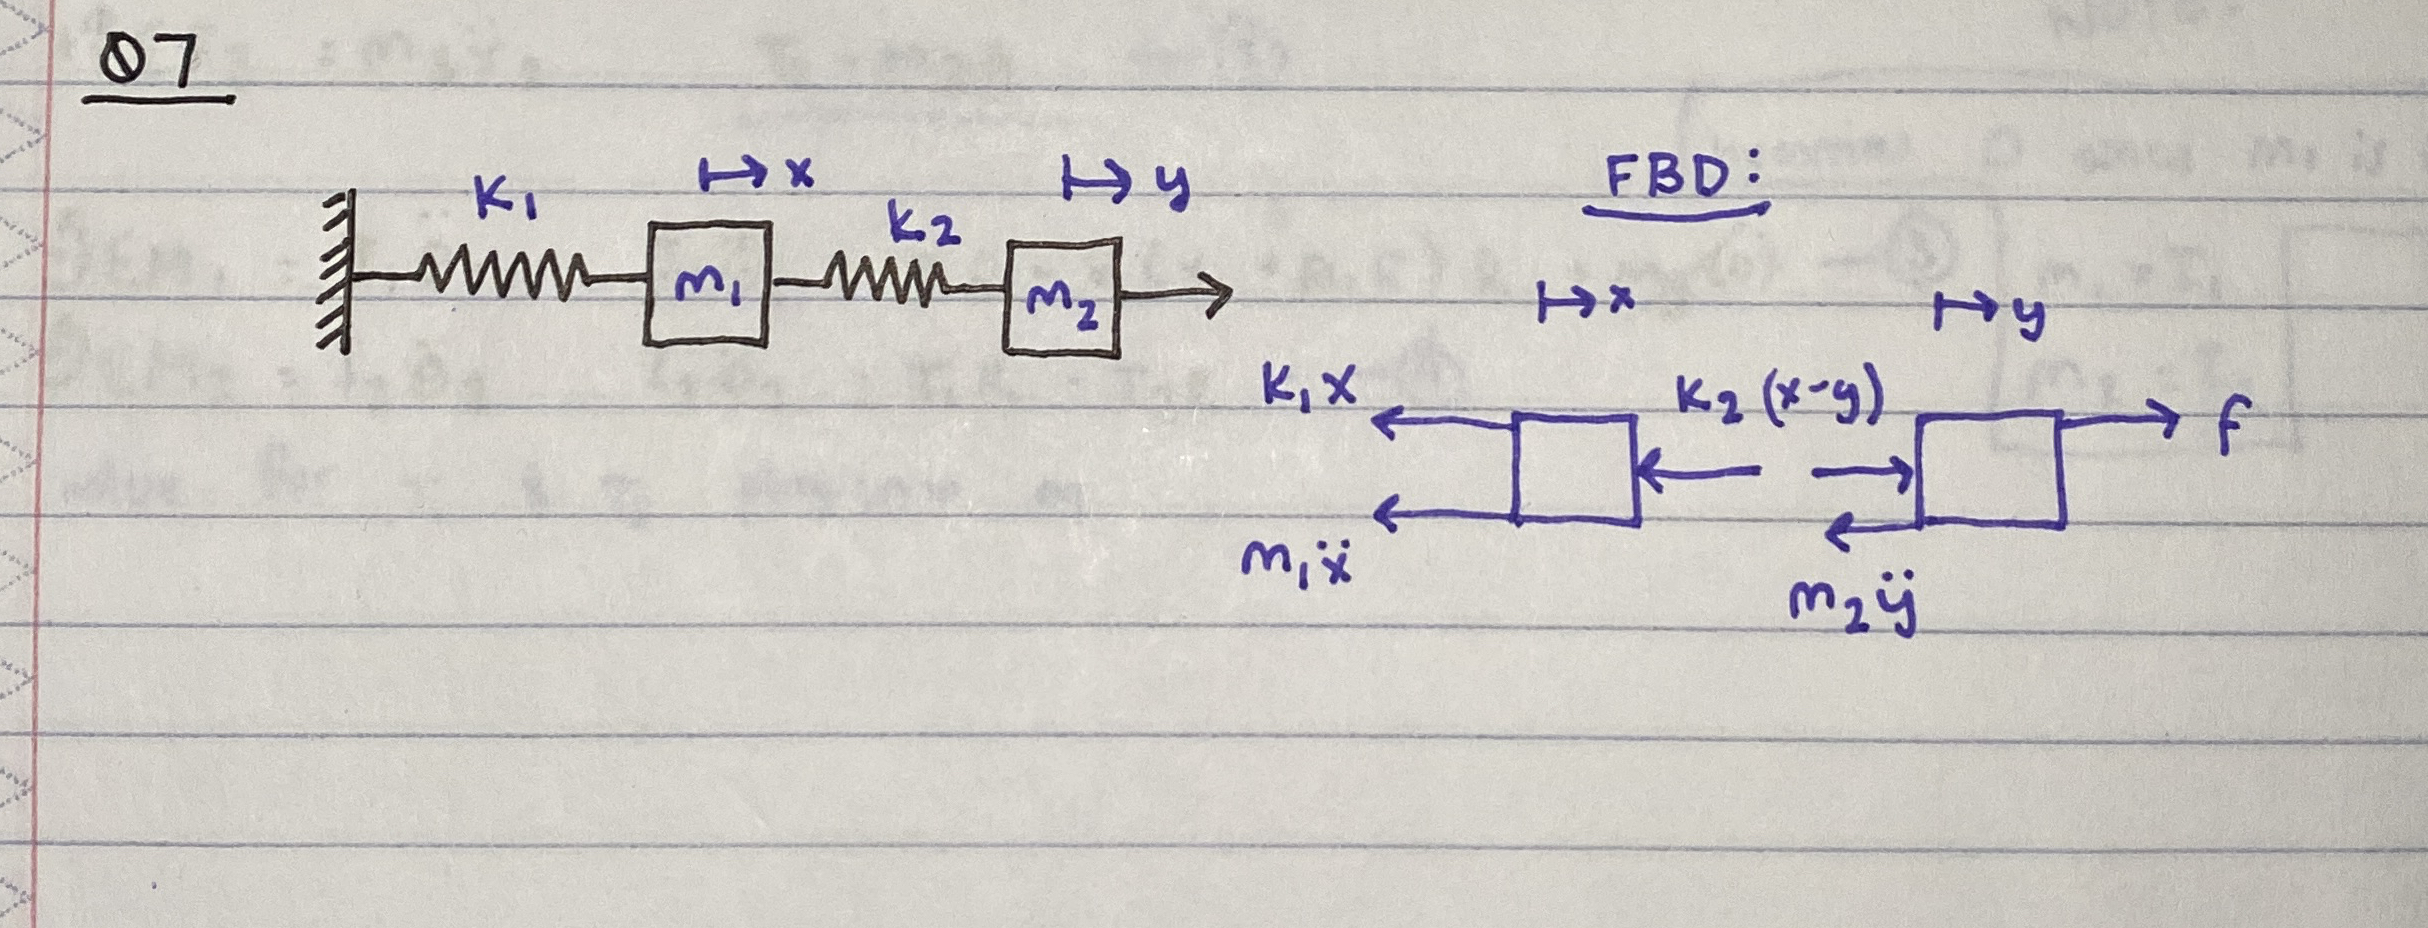 Q7
K₁ ↦ x K₂ ↦ y
m₁ m₂
FBD:
↦ x ↦ y
K₁x K₂(x-y) f
m₁ẍ m₂ÿ